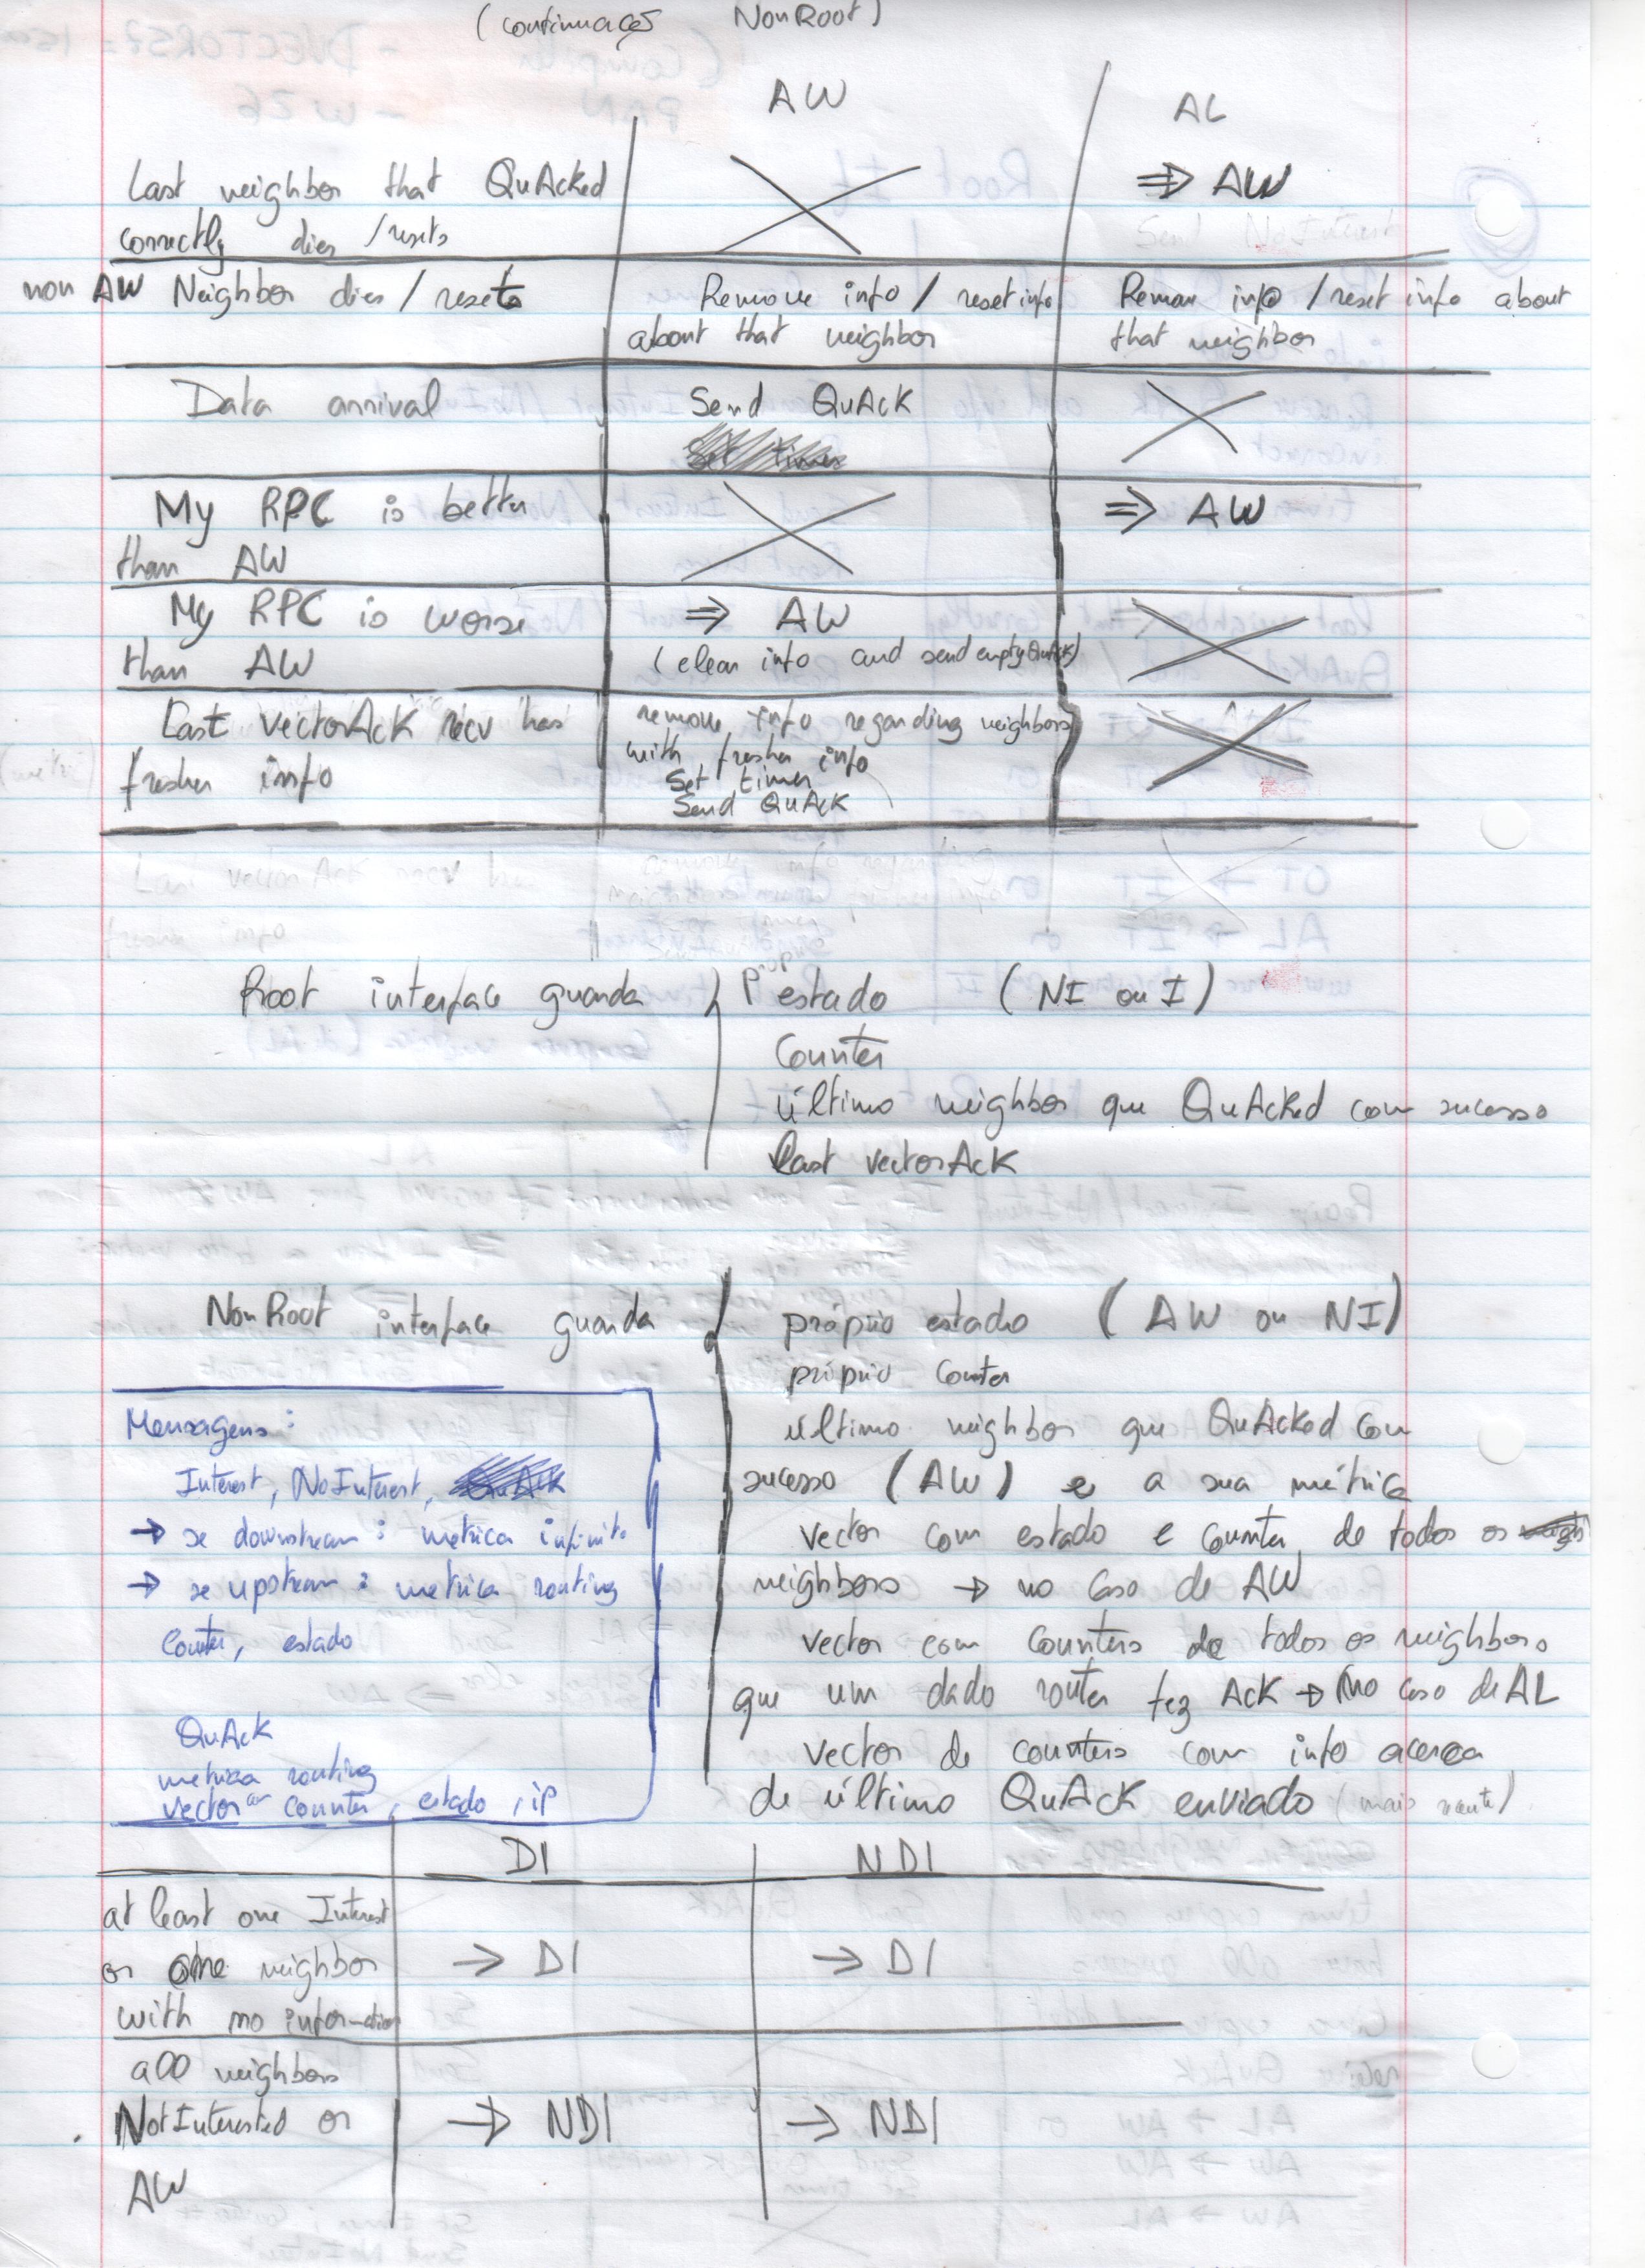 (continuação NonRoot)
AW AL
Last neighbor that QuAcked
correctly dies / resets
⇒ AW
Send NoInterest
non AW Neighbor dies / resets
Remove info / reset info
about that neighbor
Remove info / reset info about
that neighbor
Data arrival
Send QuAck
Set timer
My RPC is better
than AW
⇒ AW
My RPC is worse
than AW
⇒ AW
(clear info and send empty QuAck)
Last vectorAck recv has
fresher info
remove info regarding neighbors
with fresher info
Set timer
Send QuAck
Last vectorAck recv has
fresher info
remove info regarding
Root interface guarda
próprio
estado (NI ou I)
Counter
último neighbor que QuAcked com sucesso
last vectorAck
NonRoot interface guarda
próprio estado (AW ou NI)
próprio counter
último neighbor que QuAcked com
sucesso (AW) e a sua métrica
vector com estado e counter de todos os
neighbors → no caso de AW
vector com counters de todos os neighbors
que um dado router fez Ack → no caso de AL
vector de counters com info acerca
de último QuAck enviado (mais recente)
Mensagens:
Interest, NoInterest, QuAck
→ se downstream: metrica infinita
→ se upstream: metrica routing
Counter, estado
QuAck
metrica routing
vector com counter, estado, ip
DI NDI
at least one Interest
or one neighbor
with no information
→ DI → DI
all neighbors
NotInterested or
AW
→ NDI → NDI